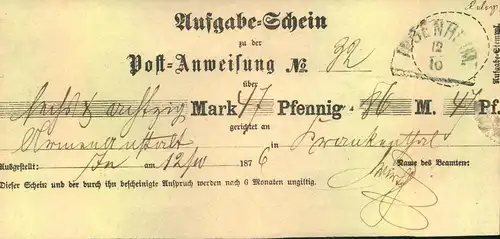 Aufgabe-Schein
zu der
Post-Anweisung № 32
12
10
über
Sechs & achtzig Mark 47 Pfennig = 86 M. 47 Pf.
gerichtet an
Armenanstalt in Frankenthal
Ausgestellt: am 12/10 1876 Name des Beamten:
Dieser Schein und der durch ihn bescheinigte Anspruch werden nach 6 Monaten ungiltig.